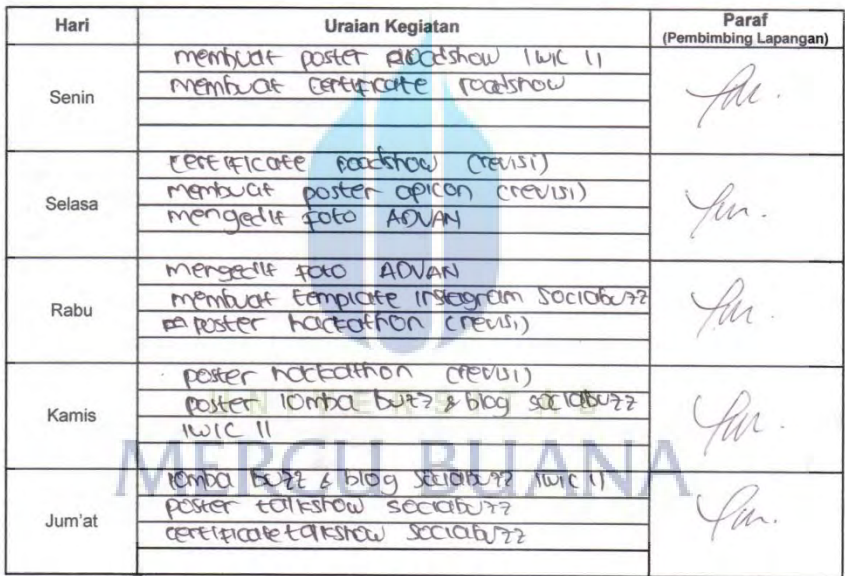 Hari Uraian Kegiatan Paraf
(Pembimbing Lapangan)
Senin
membuat poster roadshow IWIC 11
membuat certificate roadshow
Selasa
certificate roadshow (revisi)
membuat poster apicon (revisi)
mengedit foto ADVAN
Rabu
mengedit foto ADVAN
membuat template instagram sociabuzz
poster hackathon (revisi)
Kamis
poster hackathon (revisi)
poster lomba buzz & blog sociabuzz
IWIC 11
Jum'at
lomba buzz & blog sociabuzz IWIC 11
poster talkshow sociabuzz
certificate talkshow sociabuzz
UNIVERSITAS
MERCU BUANA